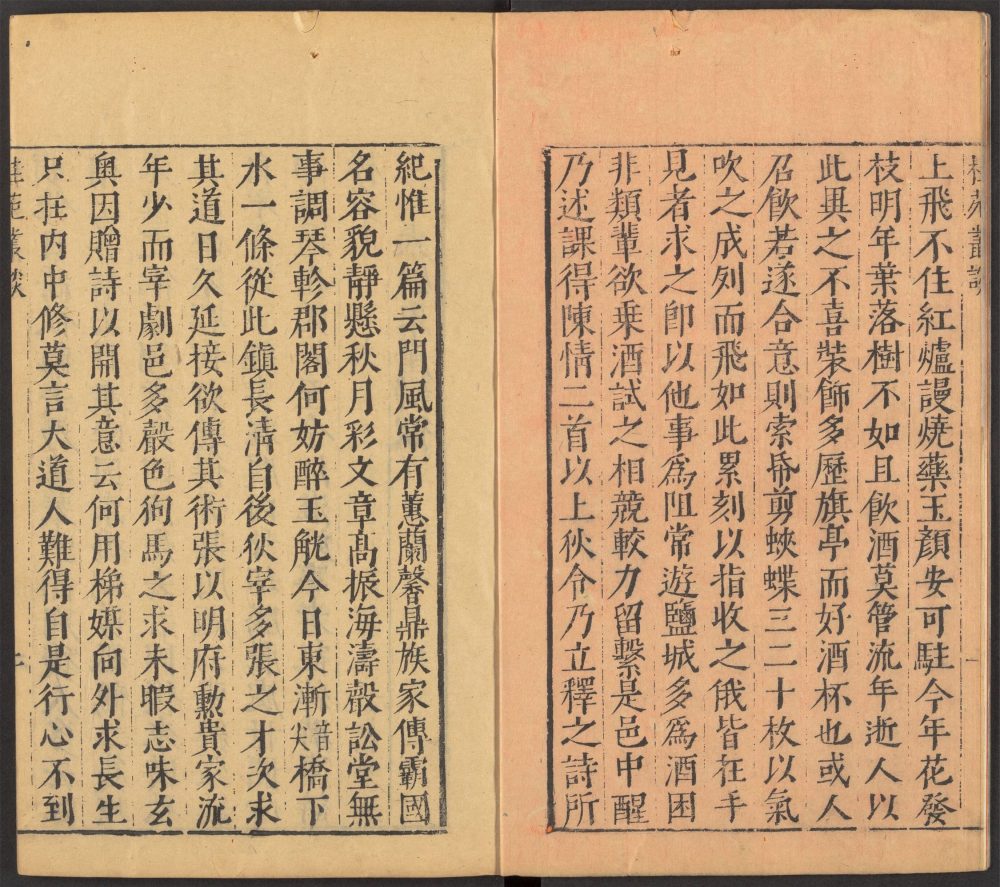 上飛不住紅爐謾燒藥玉顏安可駐今年花發
枝明年葉落樹不如且飲酒莫管流年逝人以
此異之不喜裝飾多歷旗亭而好酒杯也或人
召飲若遂合意則索帋剪蛺蝶三二十枚以氣
吹之成列而飛如此累刻以指收之俄皆在手
見者求之卽以他事爲阻常遊鹽城多爲酒困
非類輩欲乗酒試之相競較力留繫是邑中醒
乃述課得陳情二首以上狄令乃立釋之詩所
紀惟一篇云門風常有蕙蘭馨鼎族家傳霸國
名容貌靜懸秋月彩文章高振海濤聲訟堂無
事調琴軫郡閣何妨醉玉觥今日東漸音尖橋下
水一條從此鎮長淸自後狄宰多張之才次求
其道日久延接欲傳其術張以明府勳貴家流
年少而宰劇邑多聲色狗馬之求未暇志味玄
奧因贈詩以開其意云何用梯媒向外求長生
只在内中修莫言大道人難得自是行心不到